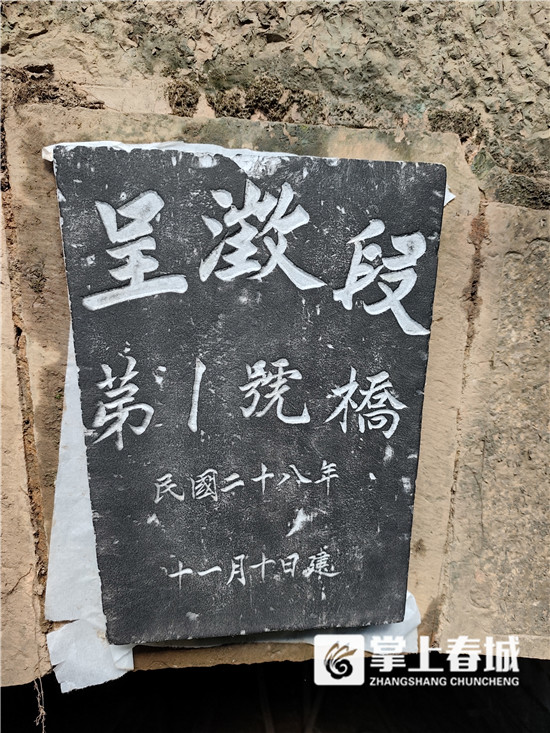 呈澂段
第1號橋
民國二十八年
十一月十日建
掌上春城
ZHANGSHANG CHUNCHENG